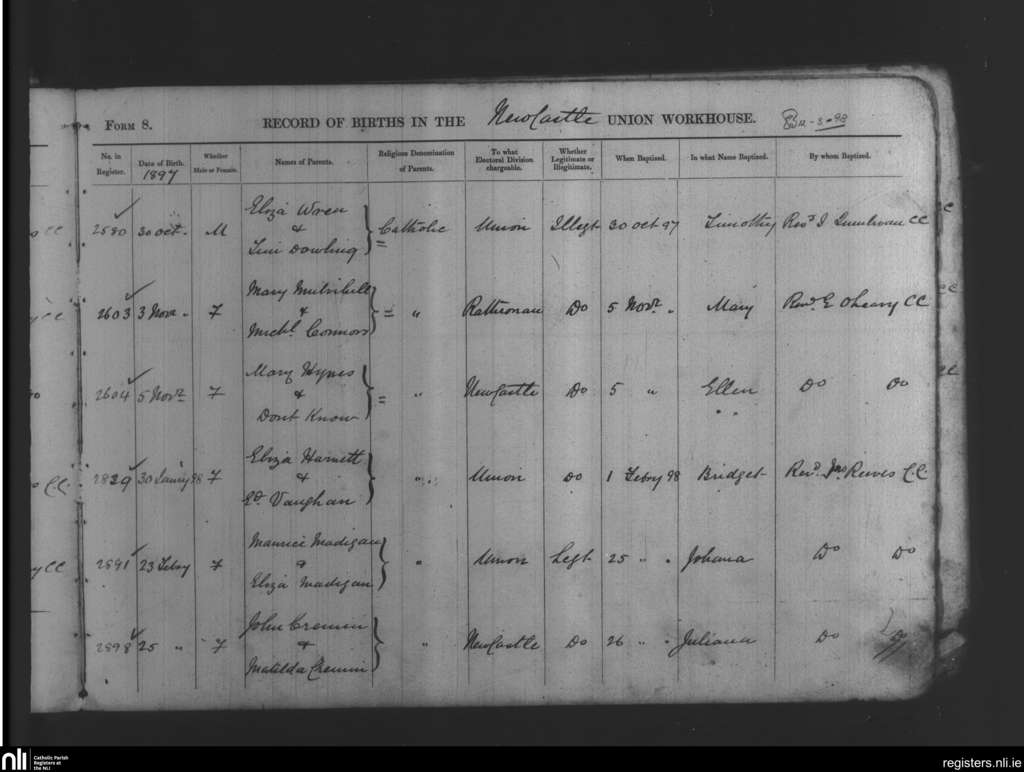 Form 8. RECORD OF BIRTHS IN THE NewCastle UNION WORKHOUSE.
No. in Register. Date of Birth. Whether Male or Female. Names of Parents. Religious Denomination of Parents. To what Electoral Division chargeable. Whether Legitimate or Illegitimate. When Baptized. In what Name Baptized. By whom Baptized.
1897
Eliza Wren
2580 30 Oct. M & Catholic Union Illegt 30 Oct 97 Timothy Revd CC
Tim Dowling
Mary Mulvihill
2603 3 Novr " F & " Do 5 Novr " Mary Revd E OLeary CC
Michl Connors
Mary Hynes
2604 5 Novr F & " NewCastle Do 5 " Ellen Do Do
Dont Know
Eliza Harnett
2829 30 98 F & " Union Do 1 Febry 98 Bridget Revd Jas Reeves C.C.
Ed Vaughan
Maurice Madigan
2891 23 Febry F & " Union Legt 25 " " Johana Do Do
Eliza Madigan
John Cremin
2898 25 " F & " NewCastle Do 26 " " Juliana Do
Matilda Cremin
nli Catholic Parish
Registers at
the NLI
registers.nli.ie